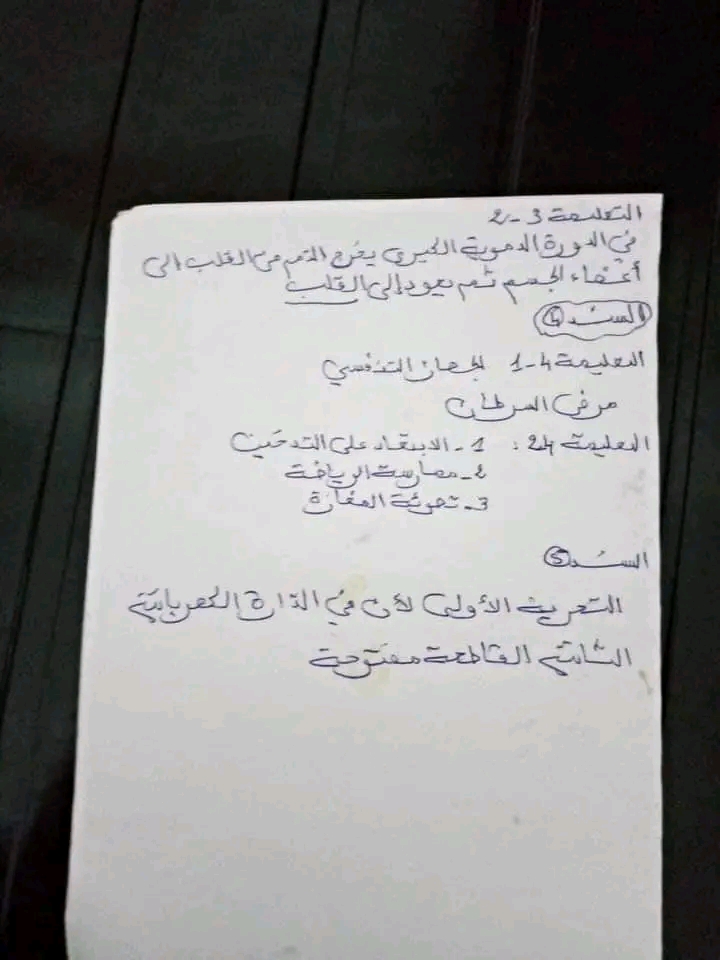 التعليمة 3-2
في الدورة الدموية الكبرى يخرج الدم من القلب إلى
أعضاء الجسم ثم يعود إلى القلب
السند 4
التعليمة 4-1 الجهاز التنفسي
مرض السرطان
التعليمة 24: 1- الابتعاد على التدخين
2- ممارسة الرياضة
3- تهوئة
السند 5
الأولى لأن في الدارة الكهربائية
الثانية القاطعة مفتوحة